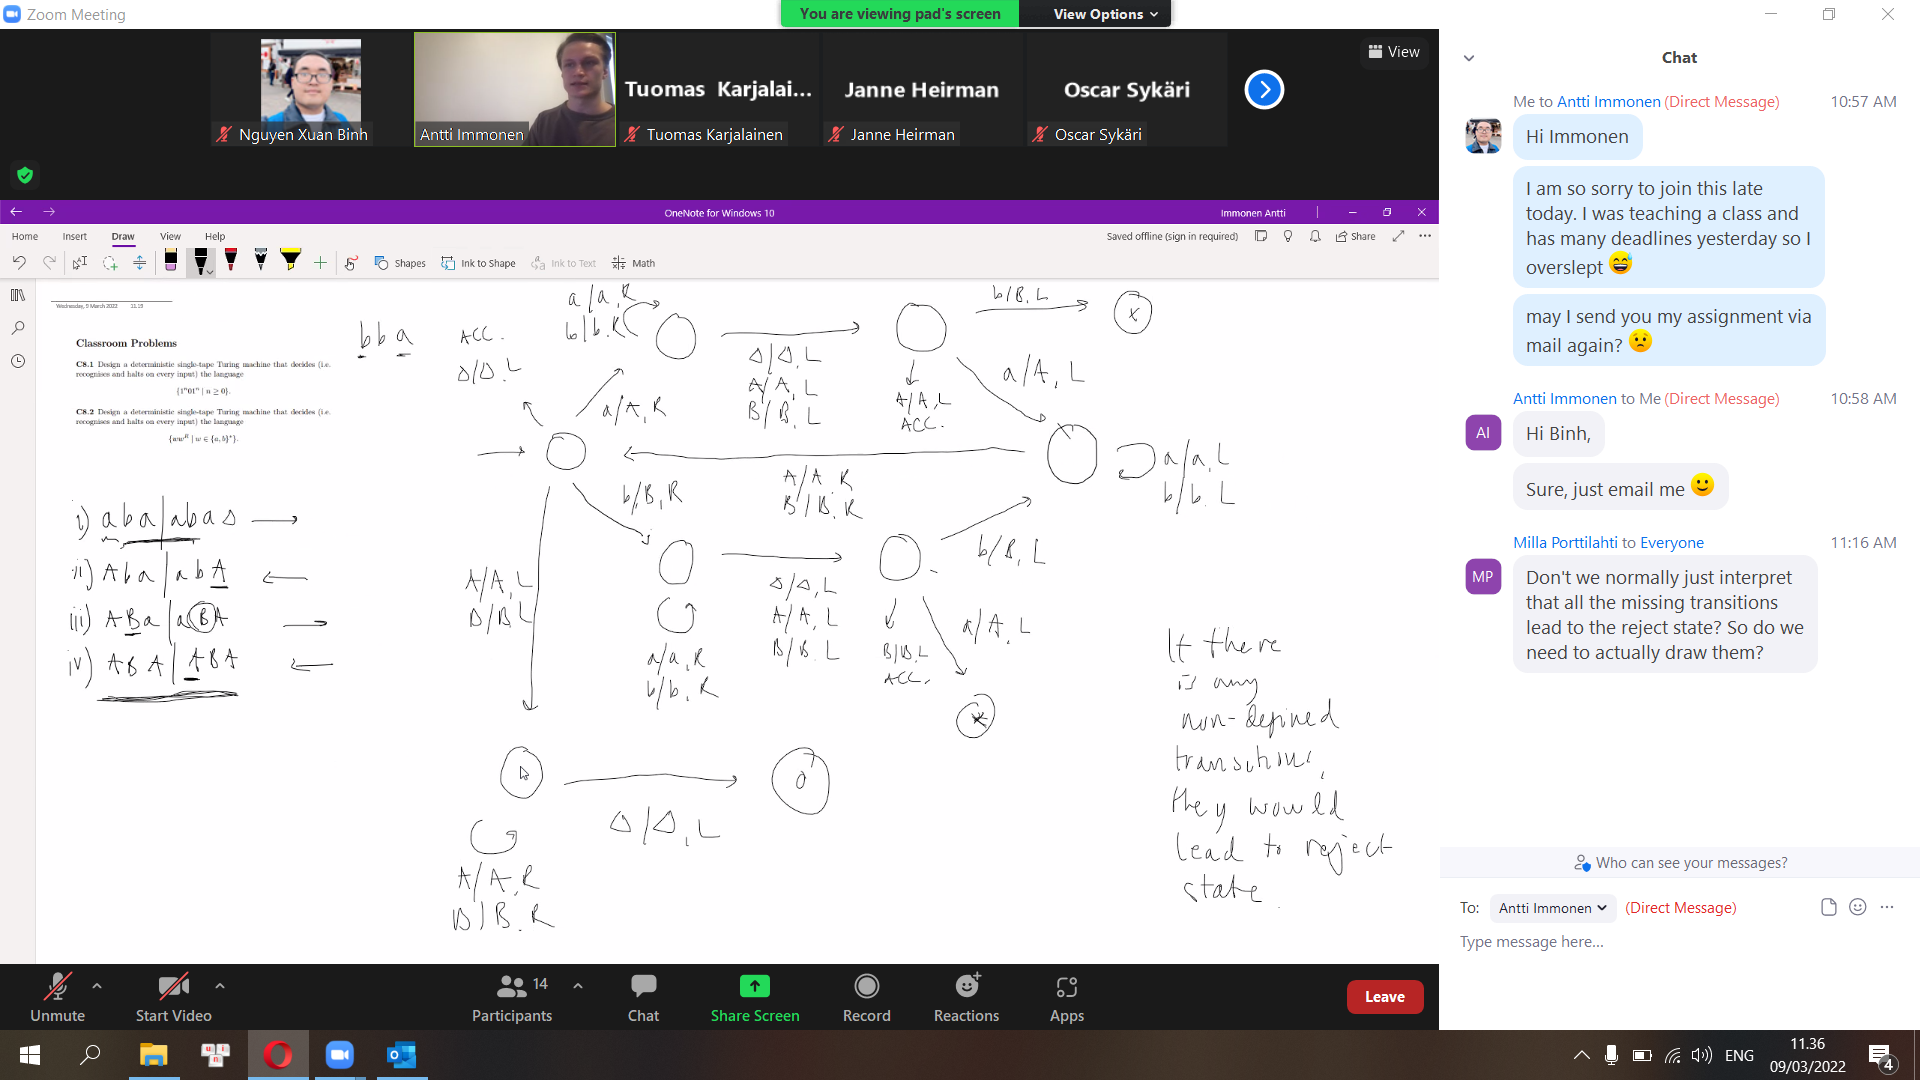 Zoom Meeting
You are viewing pad's screen
View Options
View
Tuomas Karjalai...
Janne Heirman
Oscar Sykäri
Nguyen Xuan Binh
Antti Immonen
Tuomas Karjalainen
Janne Heirman
Oscar Sykäri
OneNote for Windows 10
Immonen Antti
Home Insert Draw View Help
Saved offline (sign in required)
Share
Shapes
Ink to Shape
Ink to Text
Math
Wednesday, 9 March 2022 11.19
Classroom Problems
C8.1 Design a deterministic single-tape Turing machine that decides (i.e.
recognises and halts on every input) the language
{1ⁿ01ⁿ | n ≥ 0}.
C8.2 Design a deterministic single-tape Turing machine that decides (i.e.
recognises and halts on every input) the language
{wwᴿ | w ∈ {a, b}*}.
b b a
ACC.
Δ/Δ, L
a/a, R
b/b, R
b/B, L
x
Δ/Δ, L
A/A, L
B/B, L
a/A, R
A/A, L
ACC.
a/A, L
b/B, R
A/A, R
B/B, R
a/a, L
b/b, L
i) a b a | a b a Δ →
ii) A b a | a b A ←
iii) A B a | a B A →
iv) A B A | A B A ←
A/A, L
B/B, L
Δ/Δ, L
A/A, L
B/B, L
b/B, L
a/a, R
b/b, R
B/B, L
ACC.
a/A, L
x
Δ/Δ, L
A/A, R
B/B, R
If there
is any
non-defined
transitions,
they would
lead to reject
state.
Chat
Me to Antti Immonen (Direct Message) 10:57 AM
Hi Immonen
I am so sorry to join this late
today. I was teaching a class and
has many deadlines yesterday so I
overslept 😅
may I send you my assignment via
mail again? 😟
Antti Immonen to Me (Direct Message) 10:58 AM
AI
Hi Binh,
Sure, just email me 🙂
Milla Porttilahti to Everyone 11:16 AM
MP
Don't we normally just interpret
that all the missing transitions
lead to the reject state? So do we
need to actually draw them?
Who can see your messages?
To: Antti Immonen (Direct Message)
Type message here...
Unmute
Start Video
14
Participants
Chat
Share Screen
Record
Reactions
Apps
Leave
ENG
11.36
09/03/2022
4